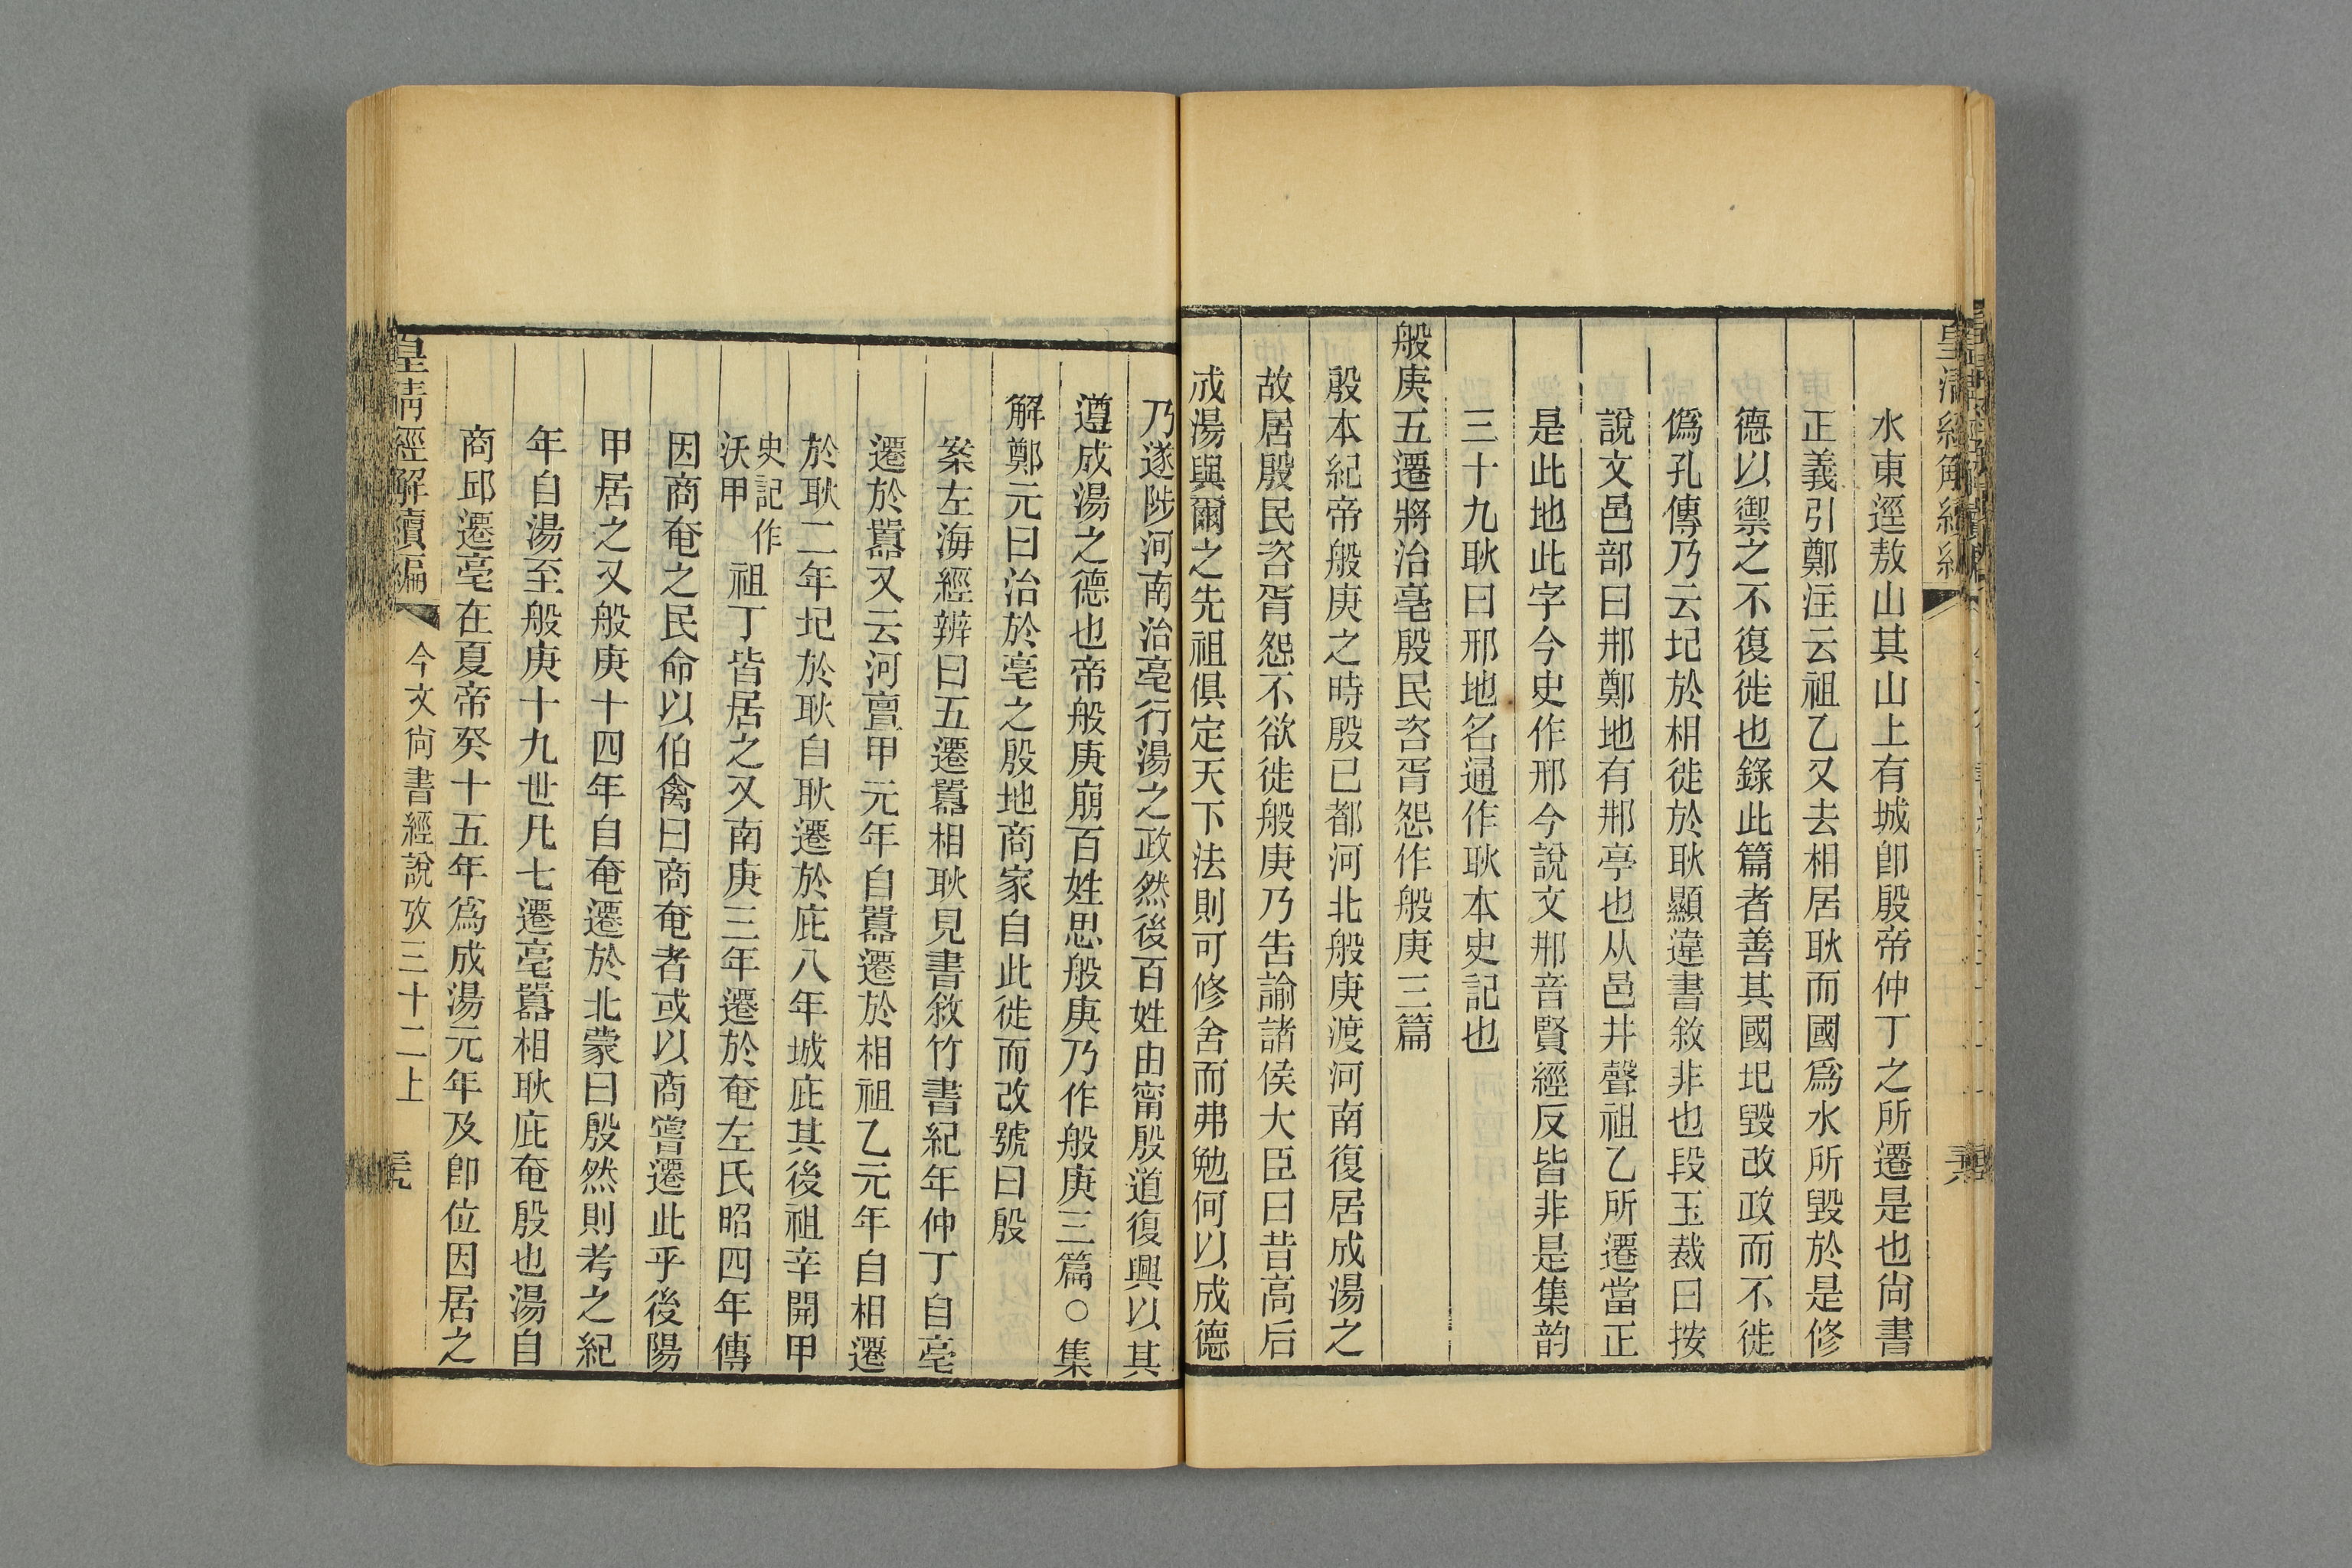 水東逕敖山其山上有城卽殷帝仲丁之所遷是也尙書
正義引鄭注云祖乙又去相居耿而國爲水所毀於是修
德以禦之不復徙也錄此篇者善其國圮毀改政而不徙
僞孔傳乃云圮於相徙於耿顯違書敘非也段玉裁曰按
說文邑部曰邢鄭地有邢亭也从邑井聲祖乙所遷當正
是此地此字今史作邢今說文邢音賢經反皆非是集韵
三十九耿曰邢地名通作耿本史記也
般庚五遷將治亳殷民咨胥怨作般庚三篇
殷本紀帝般庚之時殷已都河北般庚渡河南復居成湯之
故居殷民咨胥怨不欲徙般庚乃告諭諸侯大臣曰昔高后
成湯與爾之先祖俱定天下法則可修舍而弗勉何以成德
乃遂陟河南治亳行湯之政然後百姓由甯殷道復興以其
遵成湯之德也帝般庚崩百姓思般庚乃作般庚三篇○集
解鄭元曰治於亳之殷地商家自此徙而改號曰殷
案左海經辨曰五遷囂相耿見書敘竹書紀年仲丁自亳
遷於囂又云河亶甲元年自囂遷於相祖乙元年自相遷
於耿二年圮於耿自耿遷於庇八年城庇其後祖辛開甲
史記作
沃甲
祖丁皆居之又南庚三年遷於奄左氏昭四年傳
因商奄之民命以伯禽曰商奄者或以商嘗遷此乎後陽
甲居之又般庚十四年自奄遷於北蒙曰殷然則考之紀
年自湯至般庚十九世凡七遷亳囂相耿庇奄殷也湯自
商邱遷亳在夏帝癸十五年爲成湯元年及卽位因居之
皇淸經解續編
今文尙書經說攷三十二上